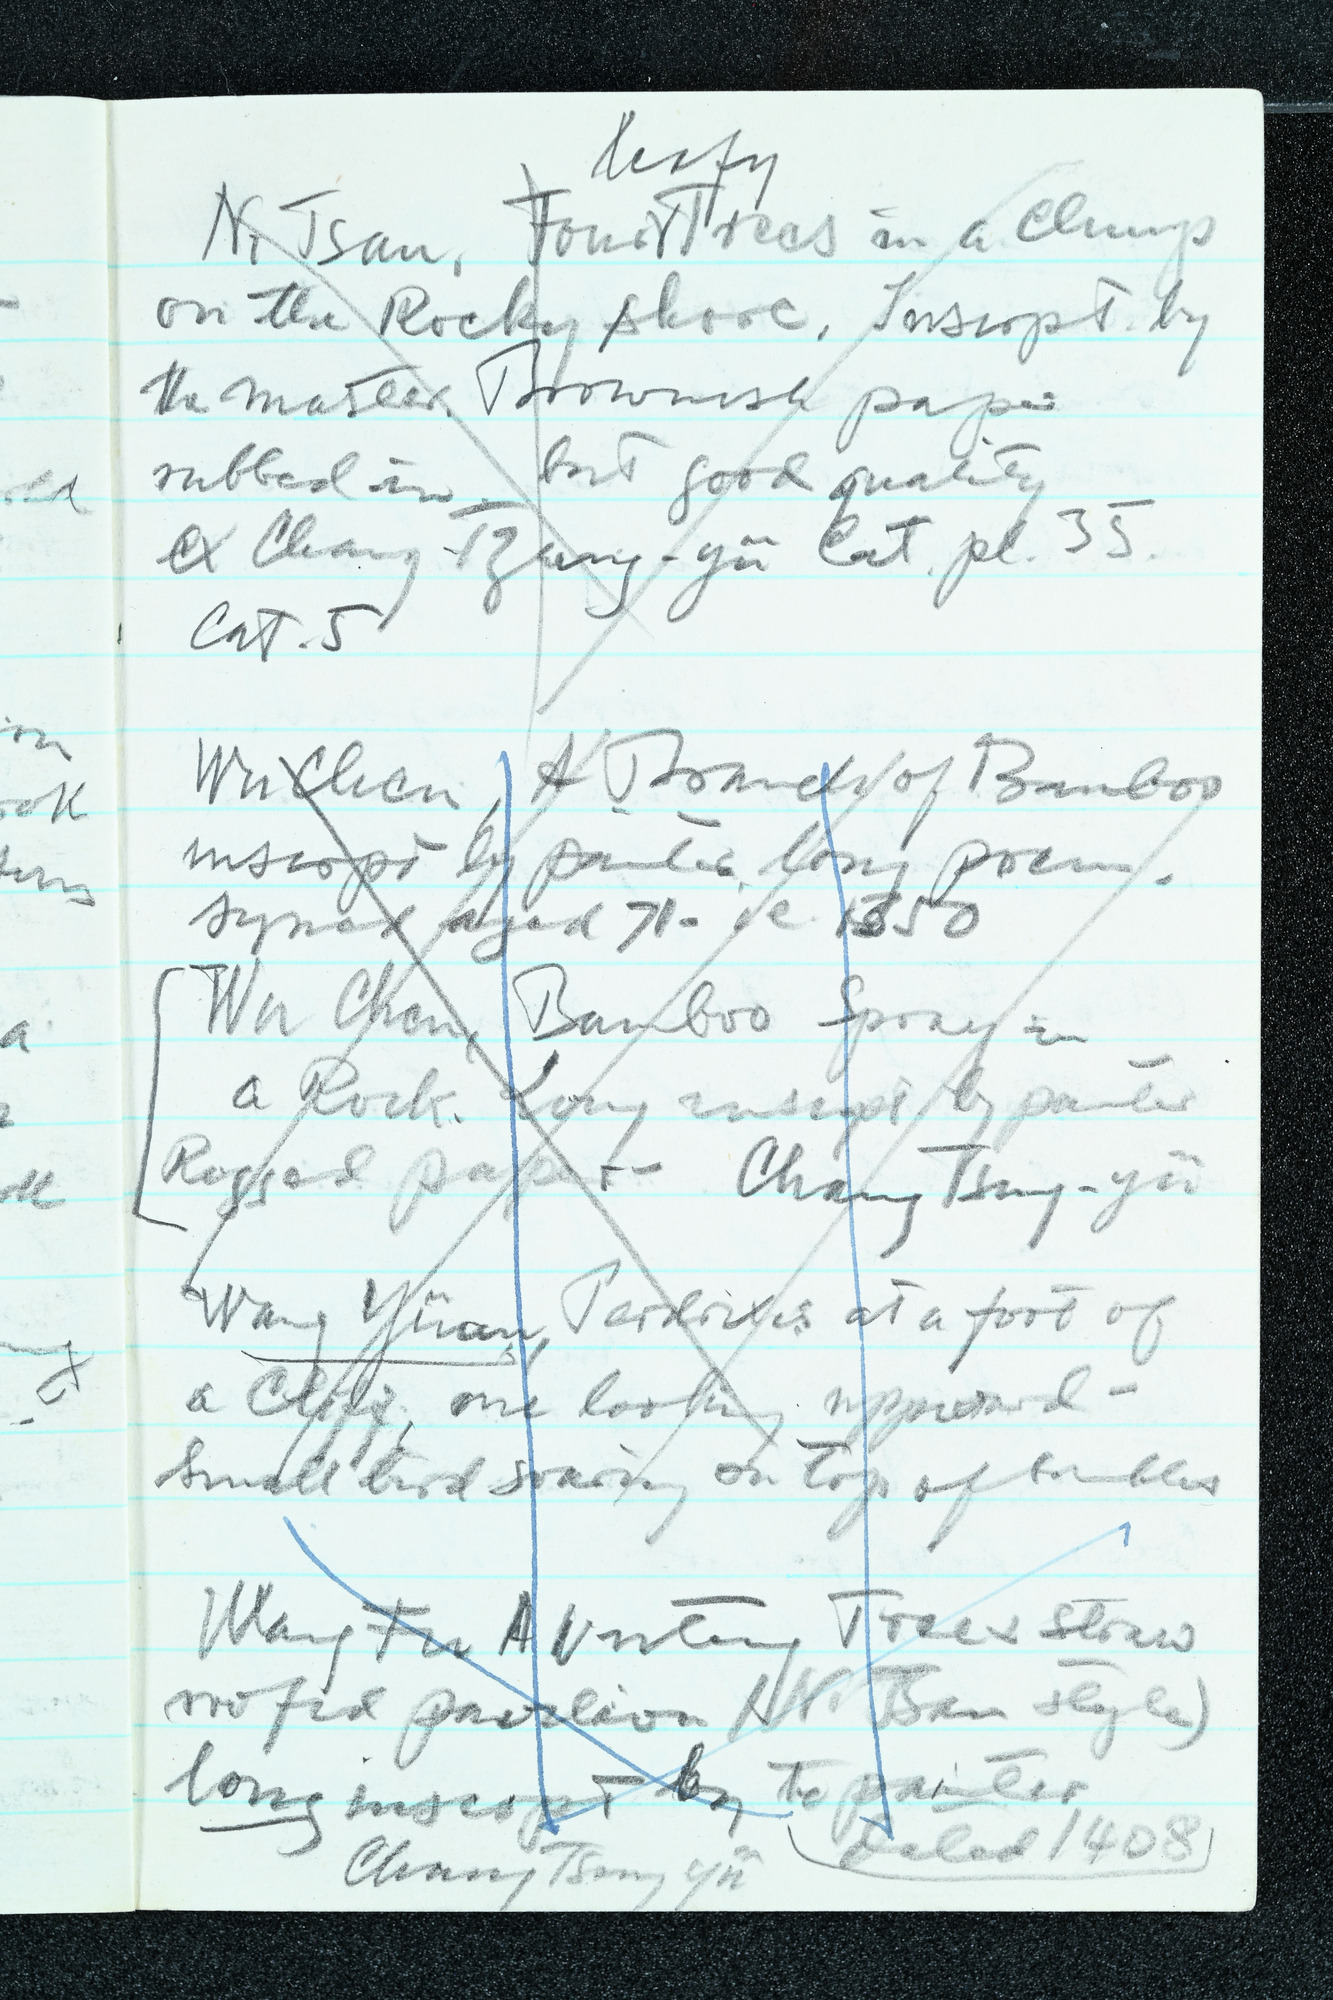 leafy
Ni Tsan, Four Trees in a Clump
on the Rocky shore. Inscrpt. by
the master. Brownish paper
rubbed in, but good quality
ex Chang Tzung-yü Cat. pl. 35.
Cat. 5
Wu Chen, A Branch of Bamboo
inscrpt by painter, long poem.
signed aged 71 - ie. 1350
Wu Chen, Bamboo Spray in
a Rock. Long inscrpt by painter
Rugged paper - Chang Tsung-yü
Wang Yüan, Perdrixes at a foot of
a Cliff, one looking uppward -
Small bird soaring on top of
Wang Fu A Wintery Trees straw
roofed pavilion (Ni Tsan style)
long inscrpt by the painter
dated 1408
Chang Tsung yü